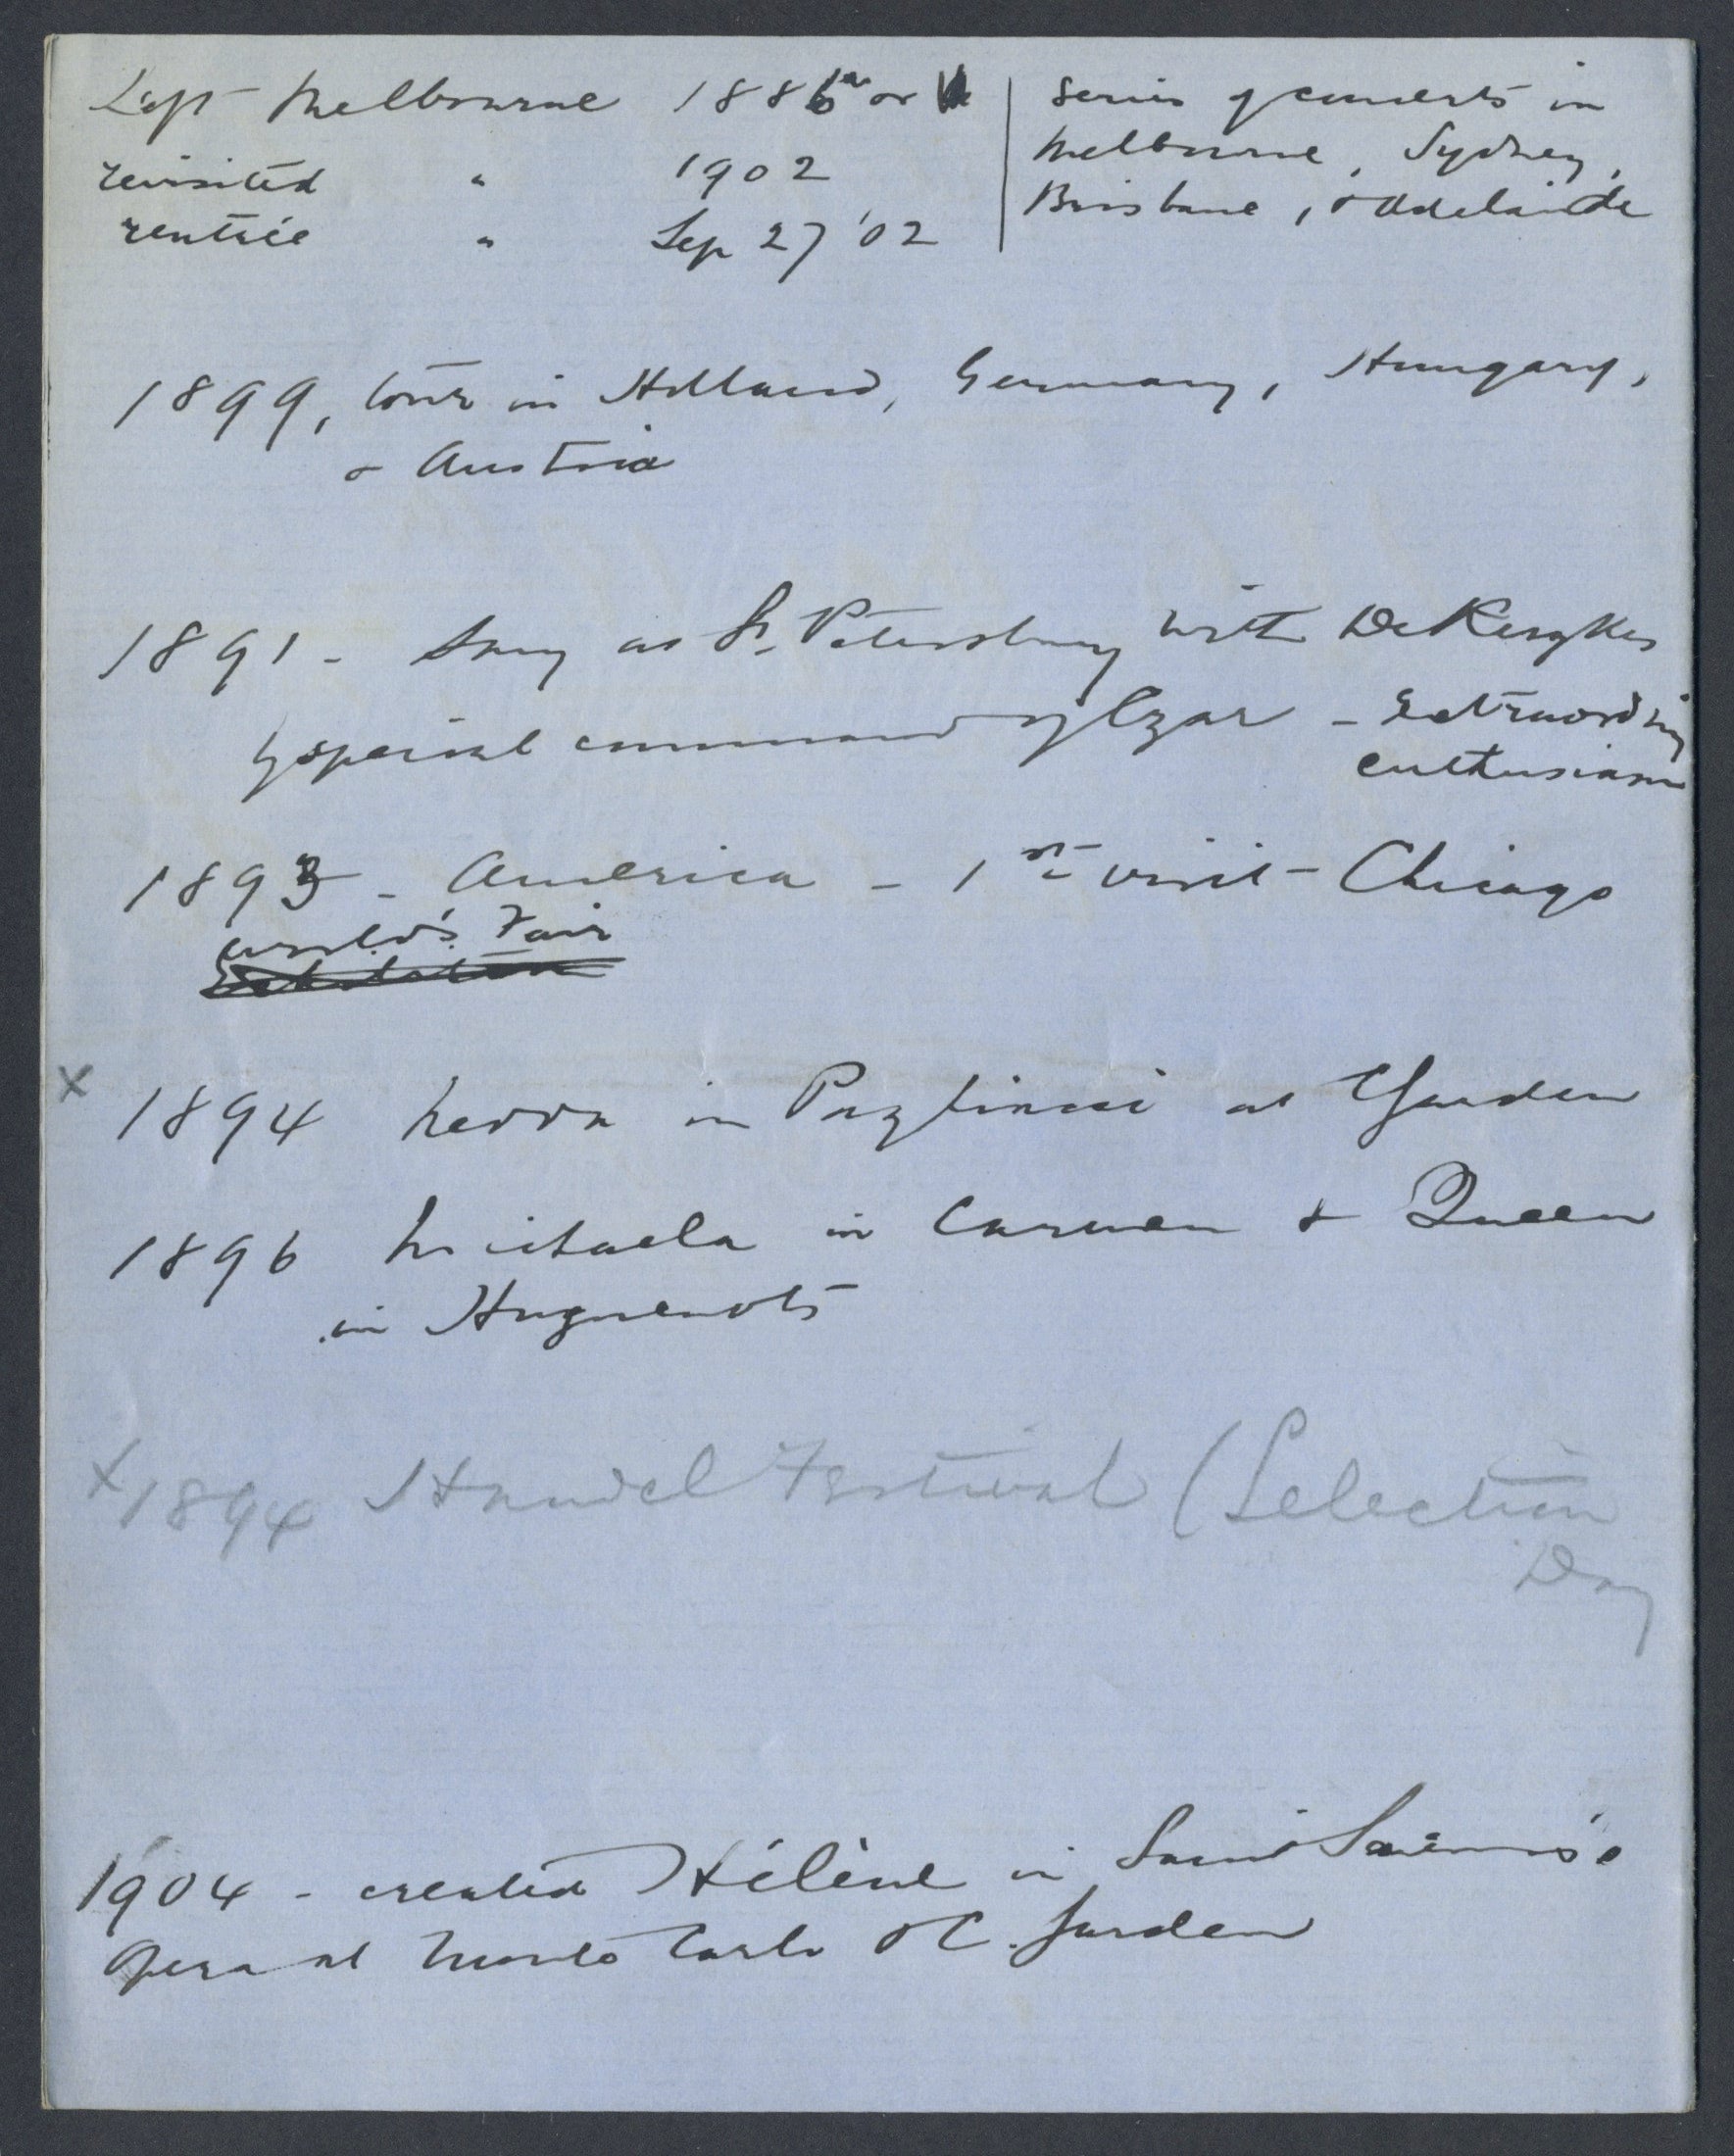 Left Melbourne 1886 or
revisited " 1902
rentrée " Sep 27 '02
series of concerts in
Melbourne, Sydney,
Brisbane, & Adelaide
1899, tour in Holland, Germany, Hungary,
& Austria
1891 - Sang at St. Petersburg with De Reszkes
by special command of Czar - Extraordin'y
enthusiasm
1893 - America - 1st visit - Chicago
World's Fair
x 1894 Nedda in Pagliacci at C Garden
1896 Michaela in Carmen & Queen
in Huguenots
x 1894 Handel Festival (Selection
Day
1904 - created Hélène in Saint Saëns's
opera at Monte Carlo & C. Garden